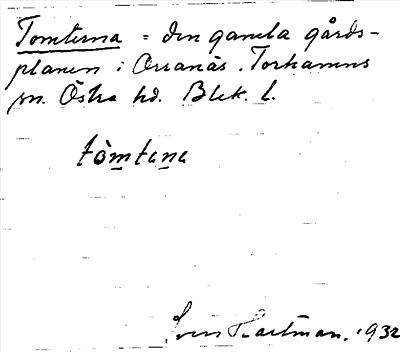 Tomterna = den gamla gårds-
planen i Orranäs. Torhamns
sn. Östra hd. Blek. l.
tòmtena
Sven Hartman. 1932